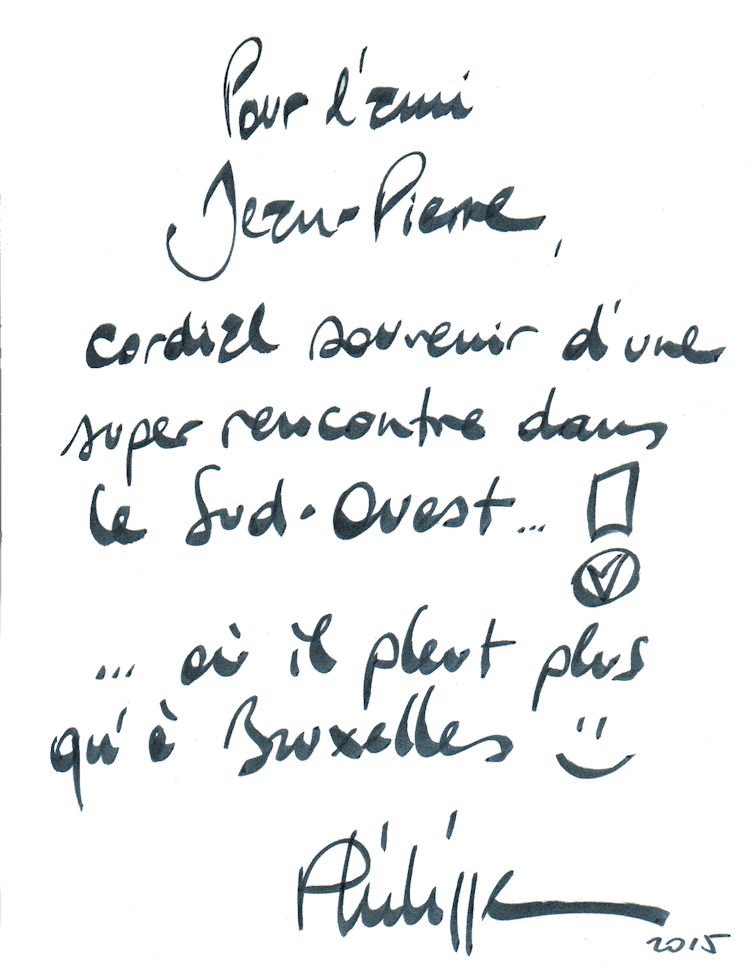 Pour l'ami
Jean-Pierre,
cordial souvenir d'une
super rencontre dans
le Sud-Ouest...
... où il pleut plus
qu'à Bruxelles
Philippe
2015